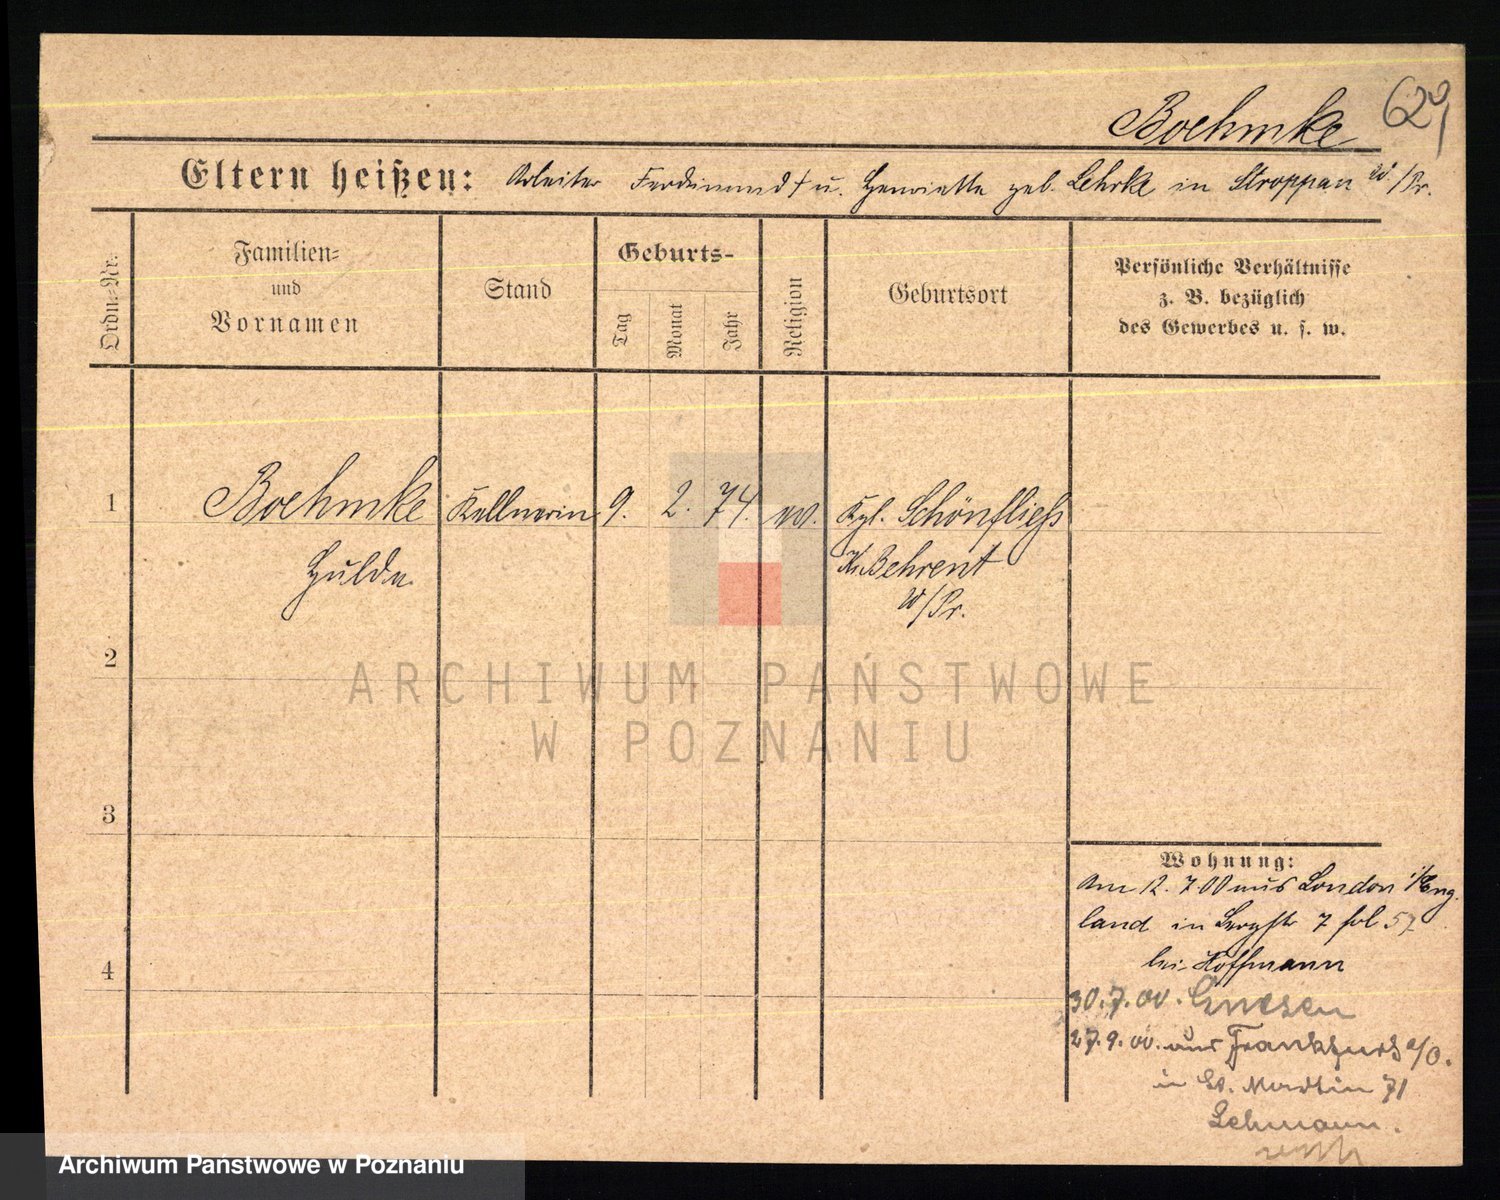 Boehmke 629
Eltern heißen: Arbeiter Ferdinand † u. Henriette geb. Lehrke in Stroppau W/Pr.
Ordn=Nr.
Familien=
und
Vornamen
Stand
Geburts-
Tag
Monat
Jahr
Religion
Geburtsort
Persönliche Verhältnisse
z. B. bezüglich
des Gewerbes u. s. w.
1 Boehmke Kellnerin 9. 2. 74. ev. Kgl. Schönfliess
Hulda Kr. Behrent
W/Pr.
2
ARCHIWUM PAŃSTWOWE
W POZNANIU
3
4
Wohnung:
Am 12. 7 00 aus London i/Eng
land in Bergstr 7 fol 57
bei Hoffmann
30.7.00. Gnesen
27.9.00. aus Frankfurt a/O.
in St. Martin 71
Lehmann.
Archiwum Państwowe w Poznaniu